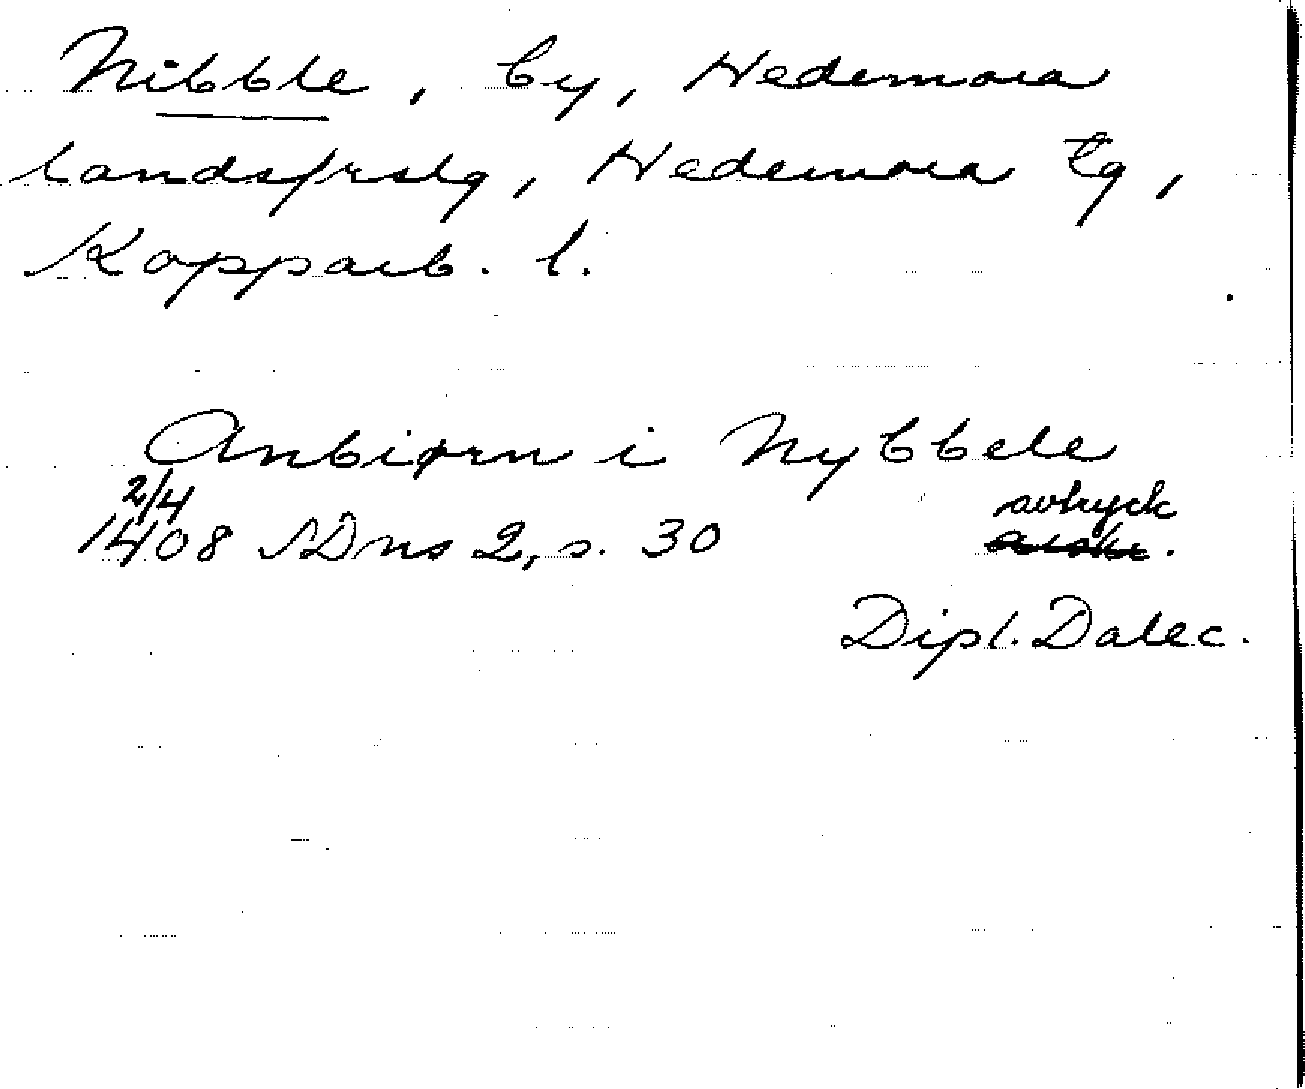 Nibble, by, Hedemora
landsfrslg, Hedemora tg,
Kopparb. l.
Anbiørn i Nybbele
2/4
1408 SDns 2, s. 30 avtryck
avskr.
Dipl. Dalec.